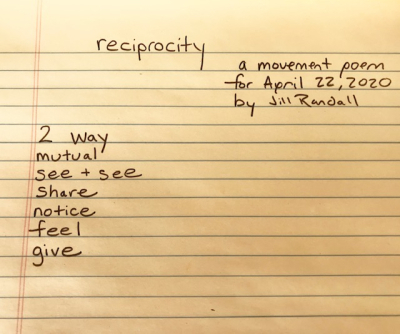 reciprocity
a movement poem
for April 22, 2020
by Jill Randall
2 way
mutual
see + see
share
notice
feel
give